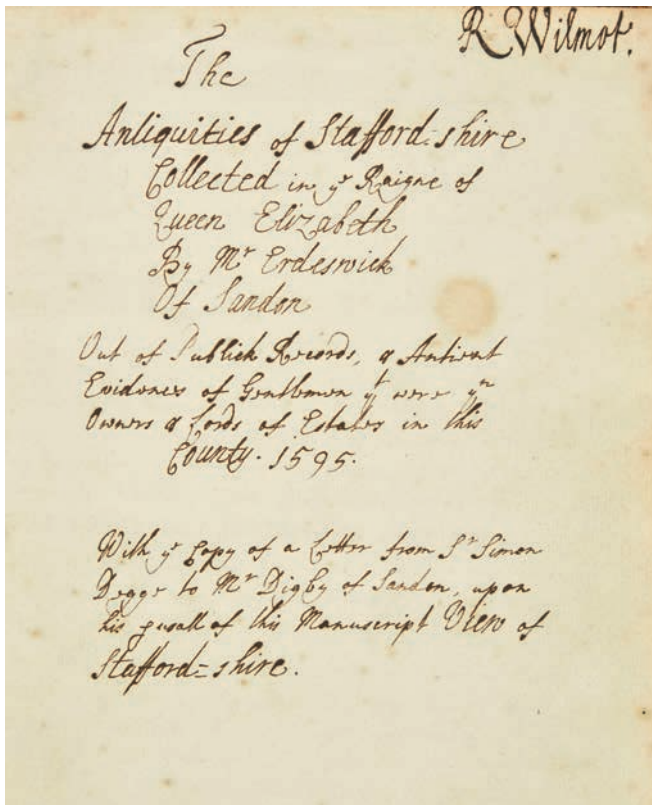 R. Wilmot.
The
Antiquities of Stafford=shire
Collected in yᵉ Raigne of
Queen Elizabeth
By Mʳ Erdeswick
Of Sandon
Out of Publick Records, & Antient
Evidences of Gentlemen yᵗ were yⁿ
Owners & Lords of Estates in this
County. 1595.
With yᵉ Copy of a Letter from Sʳ Simon
Degge to Mʳ Digby of Sandon, upon
his pusall of this Manuscript View of
Stafford=shire.